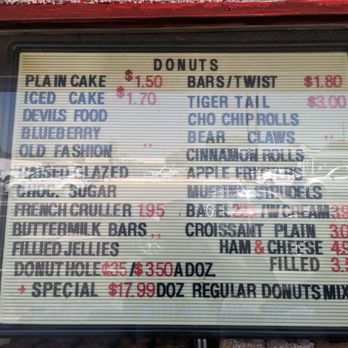 DONUTS
PLAIN CAKE $1.50 BARS/TWIST $1.80
ICED CAKE $1.70 TIGER TAIL $3.00
DEVILS FOOD CHO CHIP ROLLS
BLUEBERRY BEAR CLAWS "
OLD FASHION " CINNAMON ROLLS
RAISED GLAZED APPLE FRITTERS
CHOC. SUGAR MUFFINS STRUDELS
FRENCH CRULLER 1.95 BAGEL W CREAM
BUTTERMILK BARS " CROISSANT PLAIN
FILLIED JELLIES " HAM & CHEESE
DONUT HOLE ¢35/$3.50 A DOZ. FILLED
SPECIAL $17.99 DOZ REGULAR DONUTS MIX